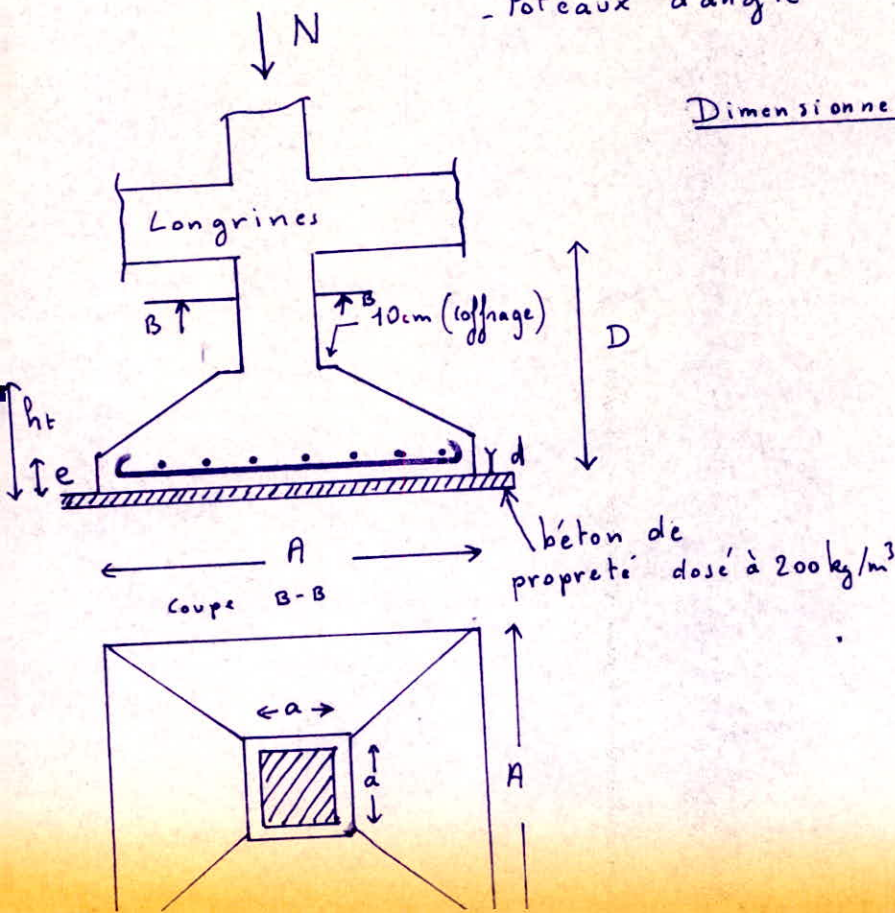 - Poteaux d'angle
N
Dimensionne
Longrines
B
B
10cm (coffrage)
D
ht
e
d
A
béton de
propreté dosé à 200 kg/m³
Coupe B-B
a
a
A